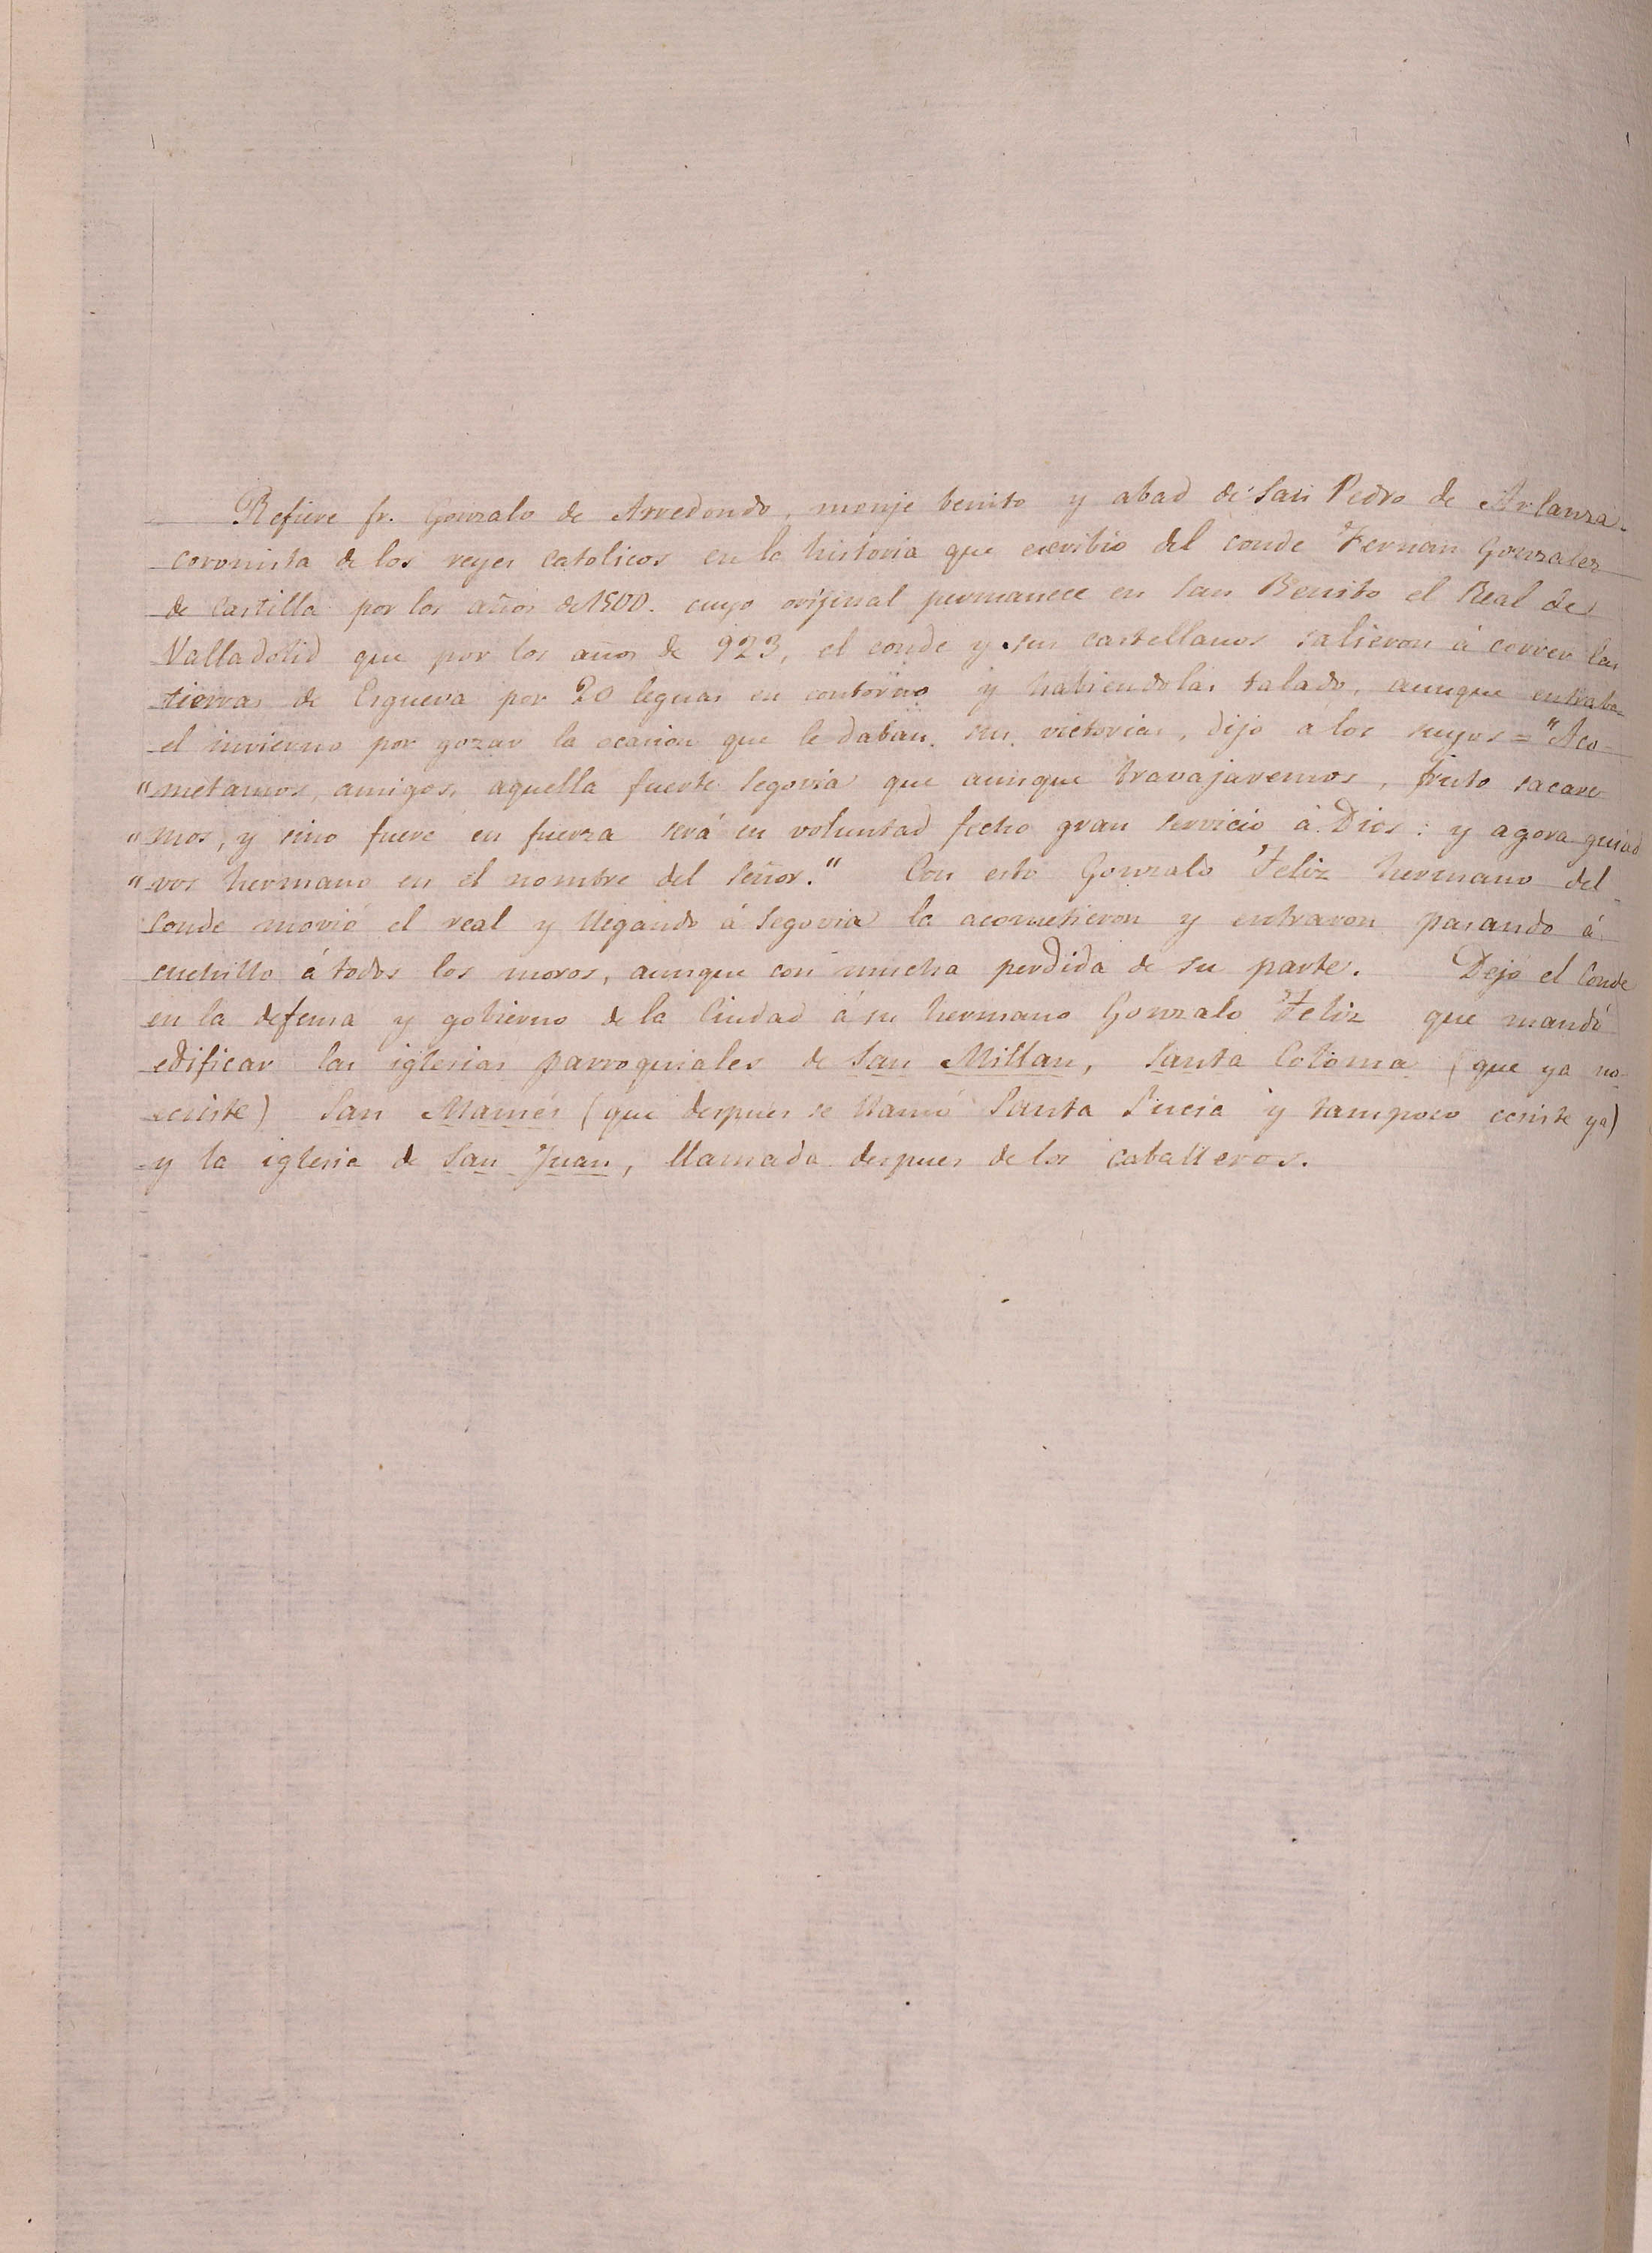 Refiere fr. Gonzalo de Arredondo, monje benito y abad de San Pedro de Arlanza
coronista de los reyes catolicos en la historia que escribio del conde Fernan Gonzalez
de Castilla por los años de 1500. cuyo orijinal permanece en San Benito el Real de
Valladolid que por los años de 923, el conde y sus castellanos salieron á correr las
tierras de Esgueva por 20 leguas en contorno y habiendolas talado, aunque entraba
el invierno por gozar la ocasion que le daban sus victorias, dijo a los suyos = "Aco-
"metamos, amigos, aquella fuerte Segovia que aunque travajaremos, fruto sacare
"mos, y sino fuere en fuerza será en voluntad fecho gran servicio á Dios: y agora guiad
"vos hermano en el nombre del Señor." Con esto Gonzalo Feliz hermano del
Conde movió el real y llegando á Segovia la acometieron y entraron pasando á
cuchillo á todos los moros, aunque con mucha perdida de su parte. Dejó el Conde
en la defensa y gobierno de la Ciudad á su hermano Gonzalo Feliz que mandó
edificar las iglesias parroquiales de San Millan, Santa Coloma (que ya no
ecsiste) San Mamés (que despues se llamó Santa Lucia y tampoco ecsiste ya)
y la iglesia de San Juan, llamada despues de los caballeros.